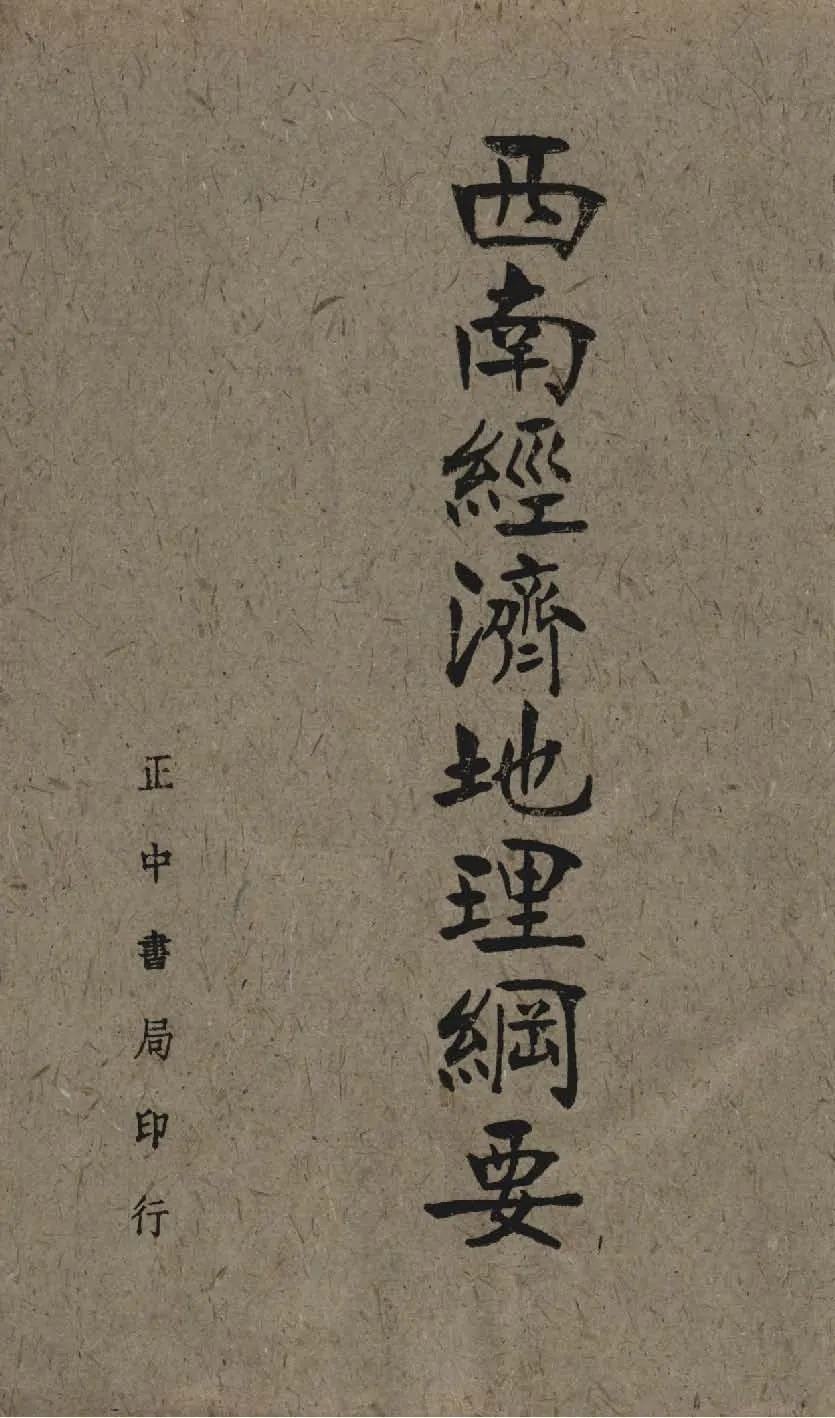 西南經濟地理綱要
正中書局印行